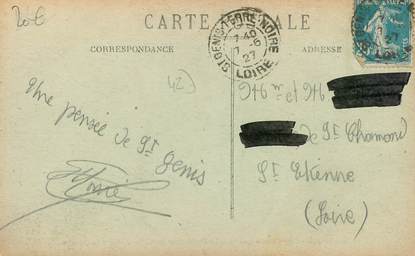 20€
CARTE POSTALE
CORRESPONDANCE
ADRESSE
ST GENIS-TERRE-NOIRE
7-6
27
LOIRE
42
Une pensée de St Genis
Mr et Mme
de St Chamond
St Etienne
(Loire)